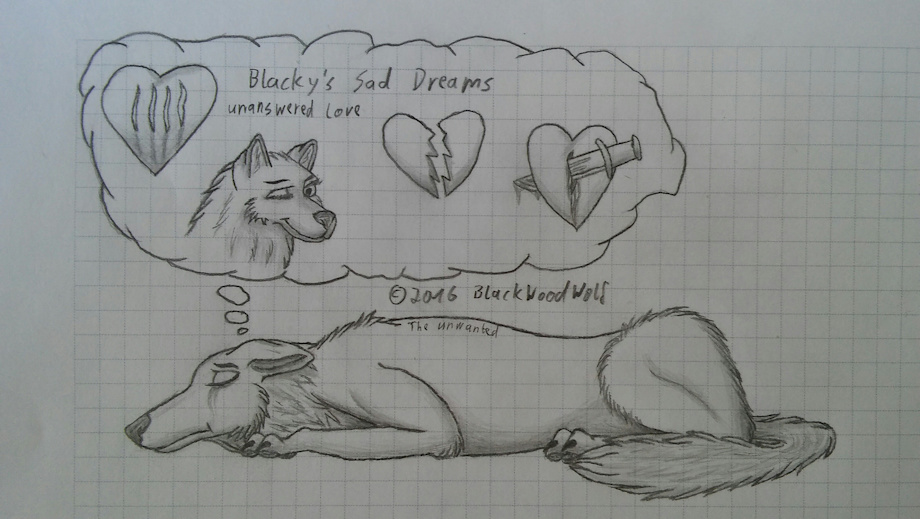 Blacky's Sad Dreams
unanswered Love
©2016 BlackWoodWolf
The unwanted